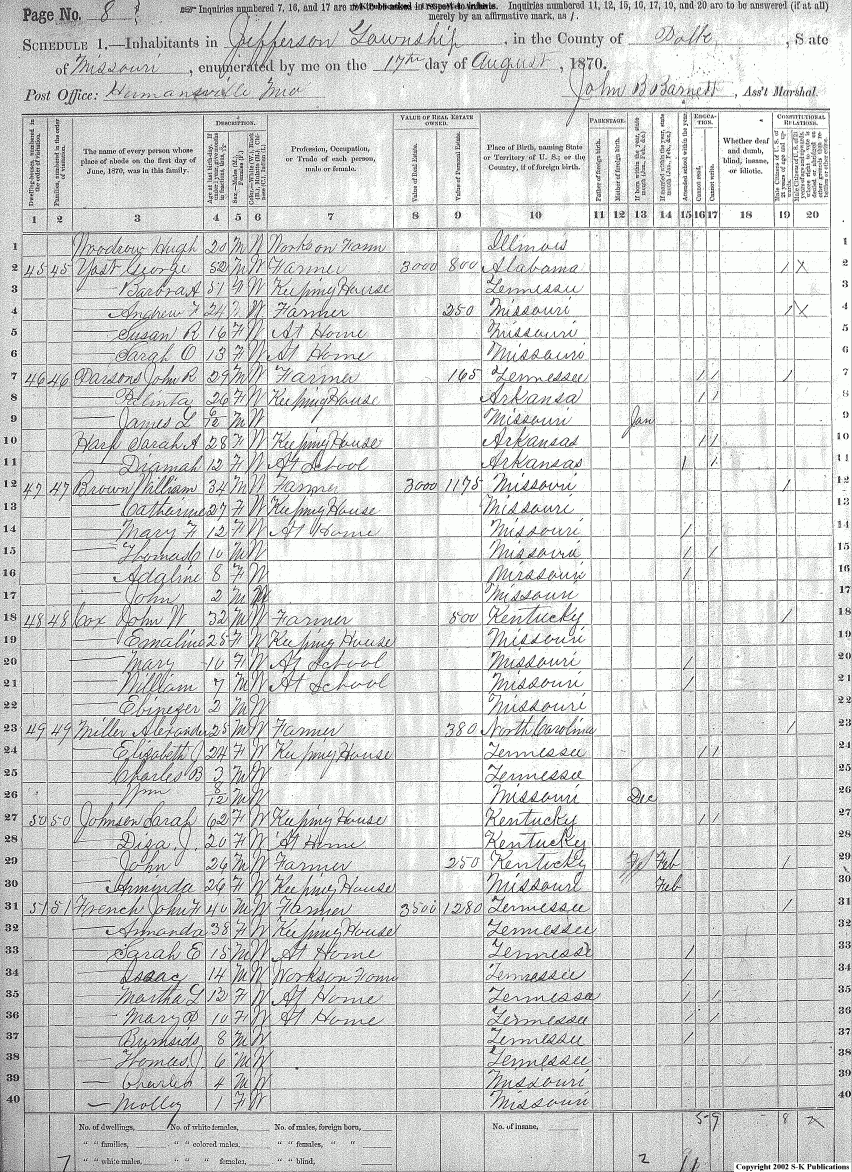 Page No. 8
Inquiries numbered 7, 16, and 17 are not to be asked in respect to infants. Inquiries numbered 11, 12, 15, 16, 17, 19, and 20 are to be answered (if at all)
merely by an affirmative mark, as /.
Schedule 1.—Inhabitants in Jefferson Township, in the County of Polk, State
of Missouri, enumerated by me on the 17th day of August, 1870.
Post Office: Humansville Mo John B Barnett, Ass't Marshal.
Description. Value of Real Estate Owned. Parentage. Education. Constitutional Relations.
Dwelling-houses, numbered in the order of visitation.
Families, numbered in the order of visitation.
The name of every person whose place of abode on the first day of June, 1870, was in this family.
Profession, Occupation, or Trade of each person, male or female.
Value of Real Estate.
Value of Personal Estate.
Place of Birth, naming State or Territory of U. S.; or the Country, if of foreign birth.
Father of foreign birth.
Mother of foreign birth.
Attended school within the year.
Cannot read.
Cannot write.
Whether deaf and dumb, blind, insane, or idiotic.
1 2 3 4 5 6 7 8 9 10 11 12 13 14 15 16 17 18 19 20
1 Woodrow Hugh 20 M W Works on Farm Illinois 1
2 45 45 Yast George 52 M W Farmer 3000 800 Alabama / X 2
3 — Barbra A 51 W Keeping House Tennessee 3
4 — Andrew F 24 W Farmer 250 Missouri / X 4
5 — Susan R 16 F W At Home Missouri 5
6 — Sarah O 13 F W At Home Missouri 6
7 46 46 Parsons John R 29 M W Farmer 165 Tennessee / / / 7
8 — 26 F W Keeping House Arkansa / / 8
9 — James L 6/12 M W Missouri Jan 9
10 Harp Sarah A 28 F W Keeping House Arkansas / / 10
11 — Diamah 12 F W At School Arkansas / / 11
12 47 47 Brown William 34 M W Farmer 3000 1175 Missouri / 12
13 — Catharine 27 F W Keeping House Missouri 13
14 — Mary F 12 F W At Home Missouri / 14
15 — Thomas C 10 M W Missouri / / 15
16 — Adaline 8 F W Missouri / 16
17 — John 2 M W Missouri 17
18 48 48 Cox John W 32 M W Farmer 500 Kentucky / 18
19 — Emaline 25 F W Keeping House Missouri 19
20 — Mary 10 F W At School Missouri / 20
21 — William 7 M W At School Missouri / 21
22 — Ebinezer 2 M W Missouri 22
23 49 49 Miller Alexander 25 M W Farmer 380 North Carolina / 23
24 — Elizabeth J 24 F W Keeping House Tennessee / / 24
25 — Charles B 3 M W Tennessee 25
26 — Wm 8/12 M W Missouri Dec 26
27 50 50 Johnsen Sarah 62 F W Keeping House Kentucky / / 27
28 — Disa J. 20 F W At Home Kentucky 28
29 — John 26 M W Farmer 250 Kentucky Feb / 29
30 — Arminda 26 F W Keeping House Missouri Feb 30
31 51 51 French John F 40 M W Farmer 3500 1280 Tennessee / 31
32 — Armanda 38 F W Keeping House Tennessee 32
33 — Sarah E 15 M W At Home Tennessee / 33
34 — Isaac 14 M W Works on Farm Tennessee / 34
35 — Martha L 12 F W At Home Tennessee / / 35
36 — Mary 10 F W At Home Tennessee / / 36
37 — Burnside 8 M W Tennessee / 37
38 — Thomas J. 6 M W Tennessee 38
39 — Charles 4 M W Missouri 39
40 — Molley 1 F W Missouri 40
No. of dwellings, No. of white females, No. of males, foreign born, No. of insane, 5 9 8 2
" " families, " " colored males, " " females, " "
7 " " white males, " " females, " " blind, 2 11
Copyright 2002 S-K Publications